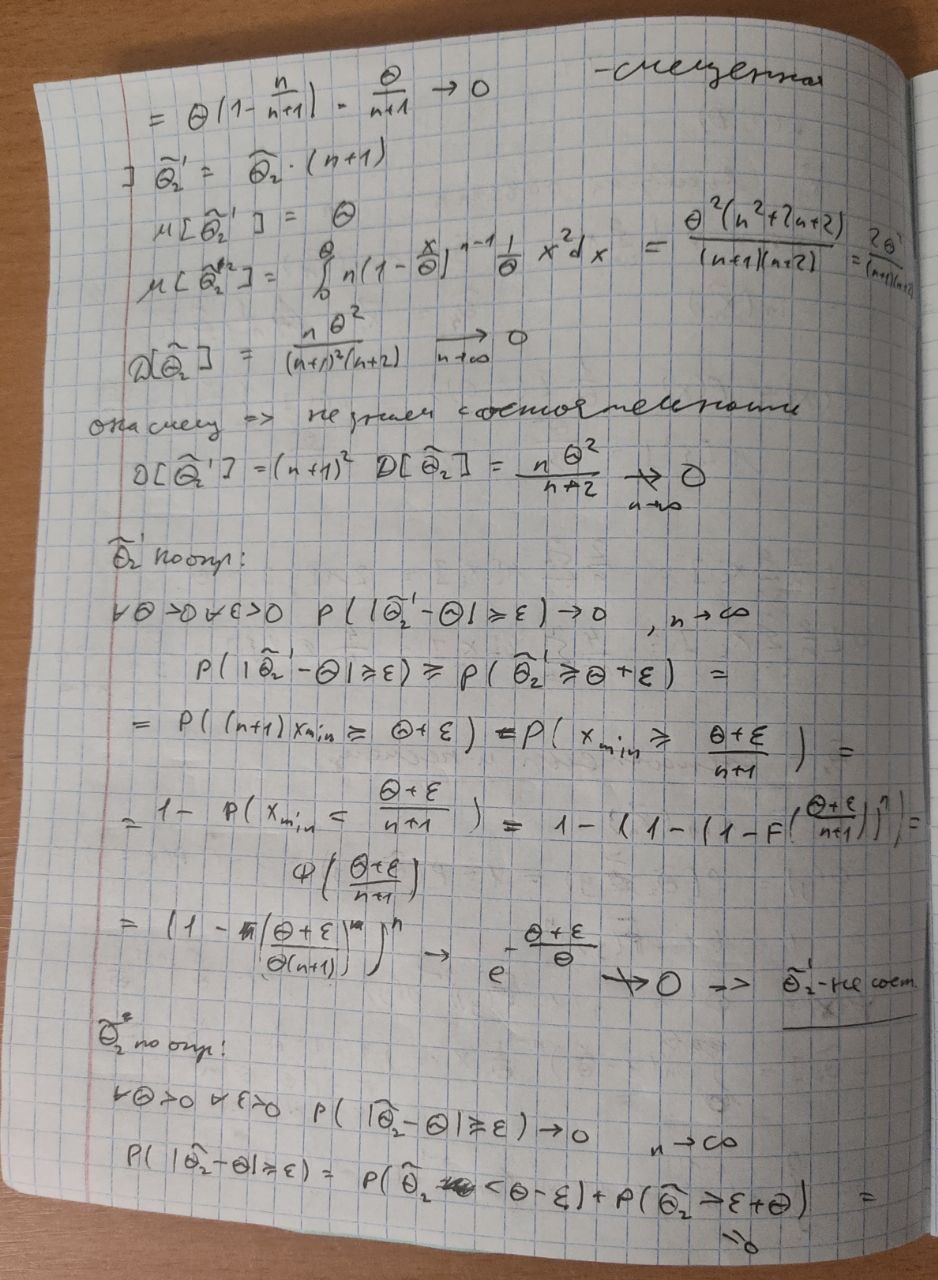 = Θ(1 - n/(n+1)) = Θ/(n+1) → 0 - смещенная
] Θ̃₂' = Θ̃₂ · (n+1)
M[Θ̃₂'] = Θ
M[Θ̃₂'²] = ∫₀^Θ n(1 - x/Θ)^(n-1) 1/Θ x² dx = Θ²(n²+2n+2)/((n+1)(n+2)) = 2Θ²/((n+1)(n+2))
D[Θ̃₂] = nΘ²/((n+1)²(n+2)) →(n→∞) 0
она смещ => не знаем состоятельности
D[Θ̃₂'] = (n+1)² D[Θ̃₂] = nΘ²/(n+2) ↛(n→∞) 0
Θ̃₂' по опр:
∀Θ>0 ∀ε>0 P(|Θ̃₂' - Θ| ⩾ ε) → 0 , n → ∞
P(|Θ̃₂' - Θ| ⩾ ε) ⩾ P(Θ̃₂' ⩾ Θ + ε) =
= P((n+1)x_min ⩾ Θ+ε) = P(x_min ⩾ (Θ+ε)/(n+1)) =
= 1 - P(x_min < (Θ+ε)/(n+1)) = 1 - (1 - (1 - F((Θ+ε)/(n+1)))ⁿ) =
Φ((Θ+ε)/(n+1))
= (1 - ((Θ+ε)/(Θ(n+1))))ⁿ → e^(-(Θ+ε)/Θ) ↛ 0 => Θ̃₂' - не сост.
Θ̃₂ по опр:
∀Θ>0 ∀ε>0 P(|Θ̃₂ - Θ| ⩾ ε) → 0 n → ∞
P(|Θ̃₂ - Θ| ⩾ ε) = P(Θ̃₂ < Θ - ε) + P(Θ̃₂ > ε + Θ) =
=0